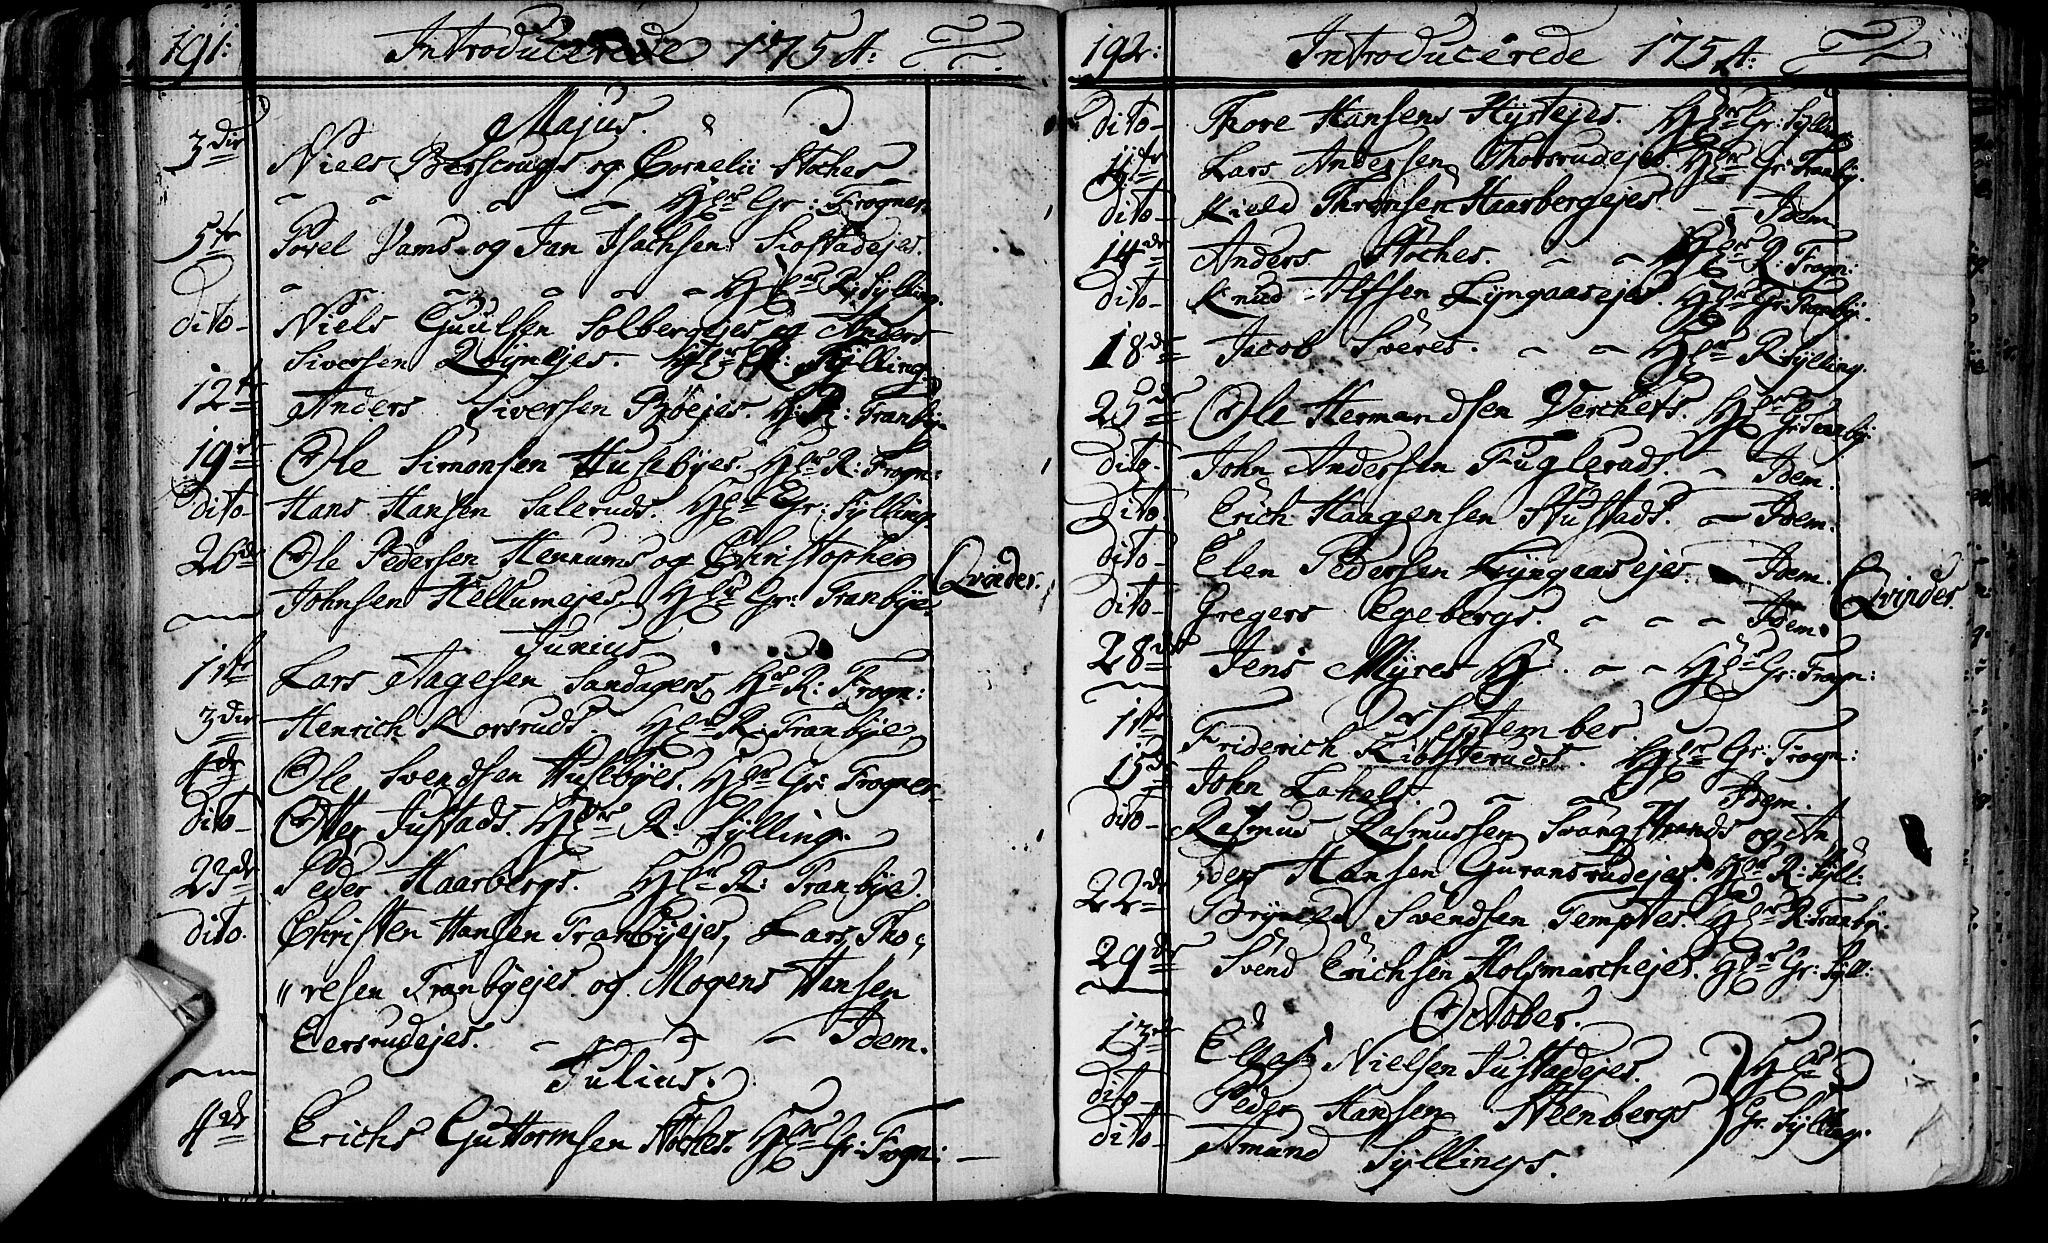 191:
Introducerede 1754:
Majus.
3die Niels Berscougs og Cornelii Stoches
Hr Gr: Frogner.
5te Povel Vams og Jan Isachsen Siostadejes.
Hr R: Sylling.
dito Niels Guulsen Solbergejes og Anders
Siversen Qvijnejes. Hr R: Sylling
12te Anders Siversen Bøejes. Hr R: Tranbÿe
19de Ole Simonsen Husebÿes. Hr R: Frogn:
dito Hans Hansen Saleruds. Hr Gr: Sylling.
26de Ole Pedersen Hennums og Christopher
Johnsen Hellumejes. Hr Gr: Tranbÿe.
Qvinder.
Junius
1ste Lars Aagesen Sandagers. Hr R: Frogn:
3die Henrich Korsruds. Hr R: Tranbÿe.
4de Ole Svendsen Husebÿes. Hr Gr: Frogner.
dito Otter Justads. Hr R: Sylling.
23de Peder Haarbergs. Hr R: Tranbÿe.
dito. Christen Hansen Tranbÿejes, Lars Tho,
"resen Tranbÿejes. og Mogens Hansen
Eersrudejes. Idem.
Julius.
4de Erichs Guttormsen Stoches. Hr Gr: Frogn:
192:
Introducerede 1754:
dito Thore Hansens Hÿrtejes. Hr Gr: Sylling
Lars Andersen Thorsrudejes. Hr Gr: Tranbÿ.
dito Kield Thronsen Haarbergejes. Idem
14de Anders Stoches. Hr R: Frogn:
dito Knud Alfsen Lÿngaasejes. Hr Gr: Tranbÿ.
18de Jacob Sveres. Hr R: Sylling.
25de Ole Hermandsen Verchets. Hr Gr: Tranbÿ
dito. John Andersen Fuglerads. Idem.
dito Erich Haagensen Stustads. Idem:
dito Elen Pedersen Lÿngaasejes. Idem.
dito Gregers Egebergs. Idem.
Qvinder.
28de Jens Mÿres Hr Gr: Frogn:
September.
1ste Friderich Kiosteruds. Hr Gr: Frogn:
15de John Lahelt. Idem.
dito Rasmus Rasmussen Svangstrands og An
ders Hansen Guransrudejes. Hr R: Sÿll:
22de Brÿnild Svendsen Temptes. Hr R: Tranbÿ:
29de Svend Erichsen Holsmarchejes. Hr Gr: Sÿll:
October.
13de Ellef Nielsen Justadejes. Hr
dito Peder Hansen Steenbergs Gr: Sÿlling.
dito Amund Sÿllings.